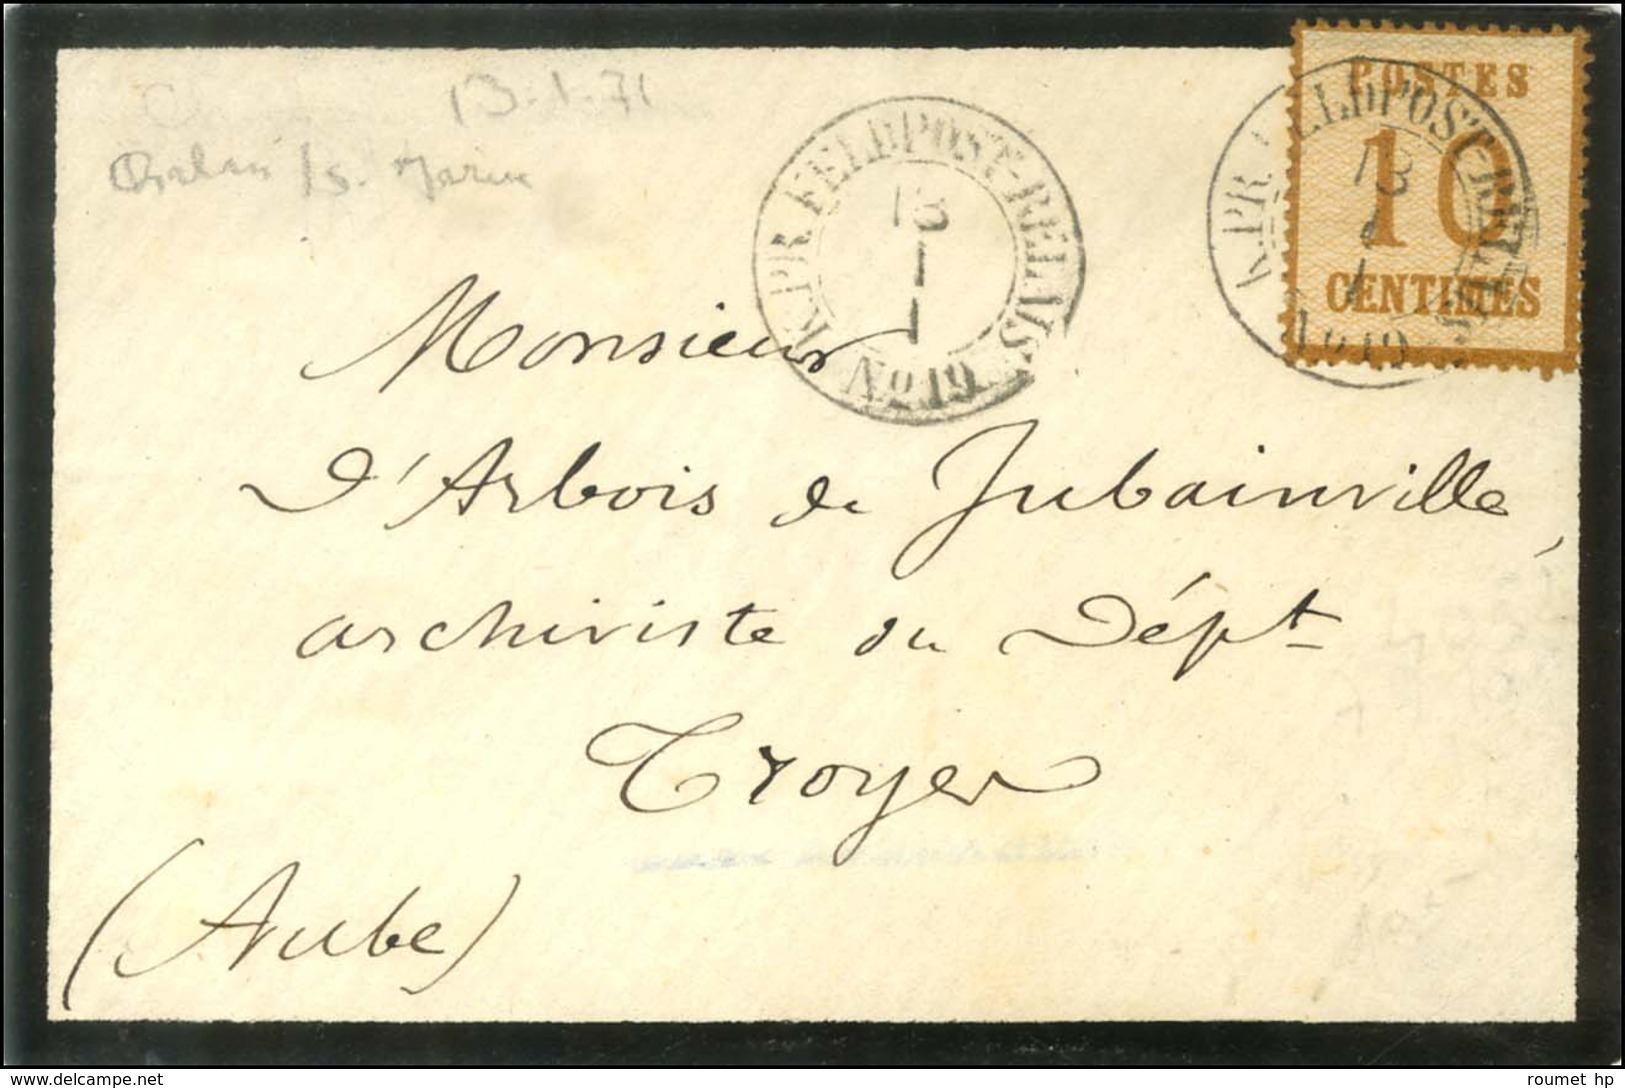 13.1.71
Chalons /s. Marne
K.PR.FELDPOST-RELAIS
13
1
No 19
K.PR.FELDPOST-RELAIS
13
1
No 19
POSTES
10
CENTIMES
Monsieur
D'Arbois de Jubainville,
archiviste du Dépt
Troyes
(Aube)
www.delcampe.net
roumet hp